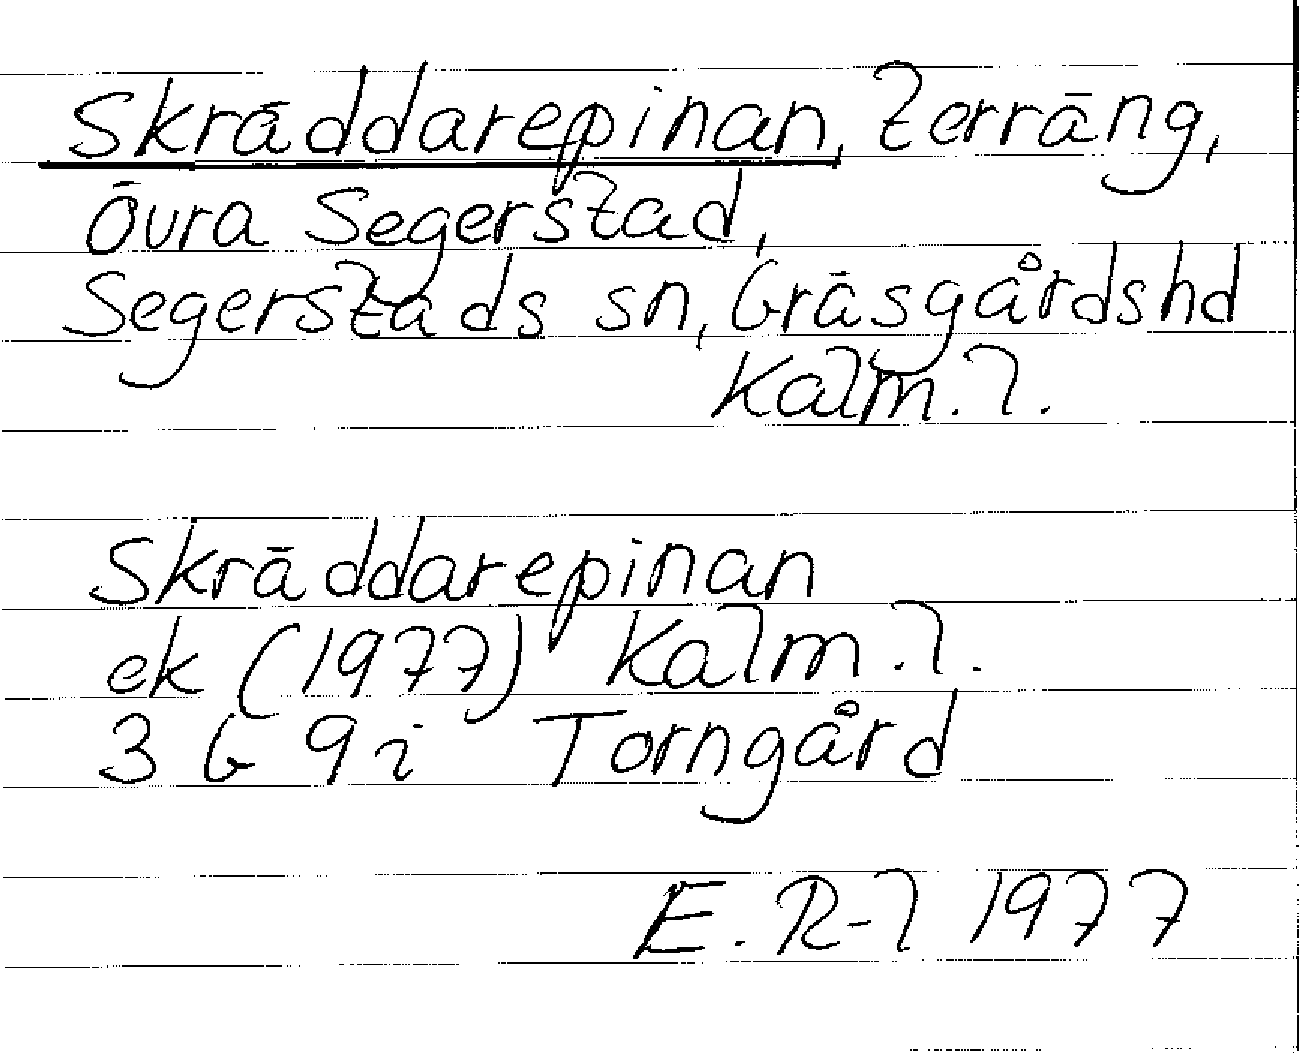 Skräddarepinan, terräng,
Övra Segerstad,
Segerstads sn, Gräsgårds hd
Kalm. l.
Skräddarepinan
ek (1977) Kalm. l.
3 G 9 i Torngård
E. R-l 1977